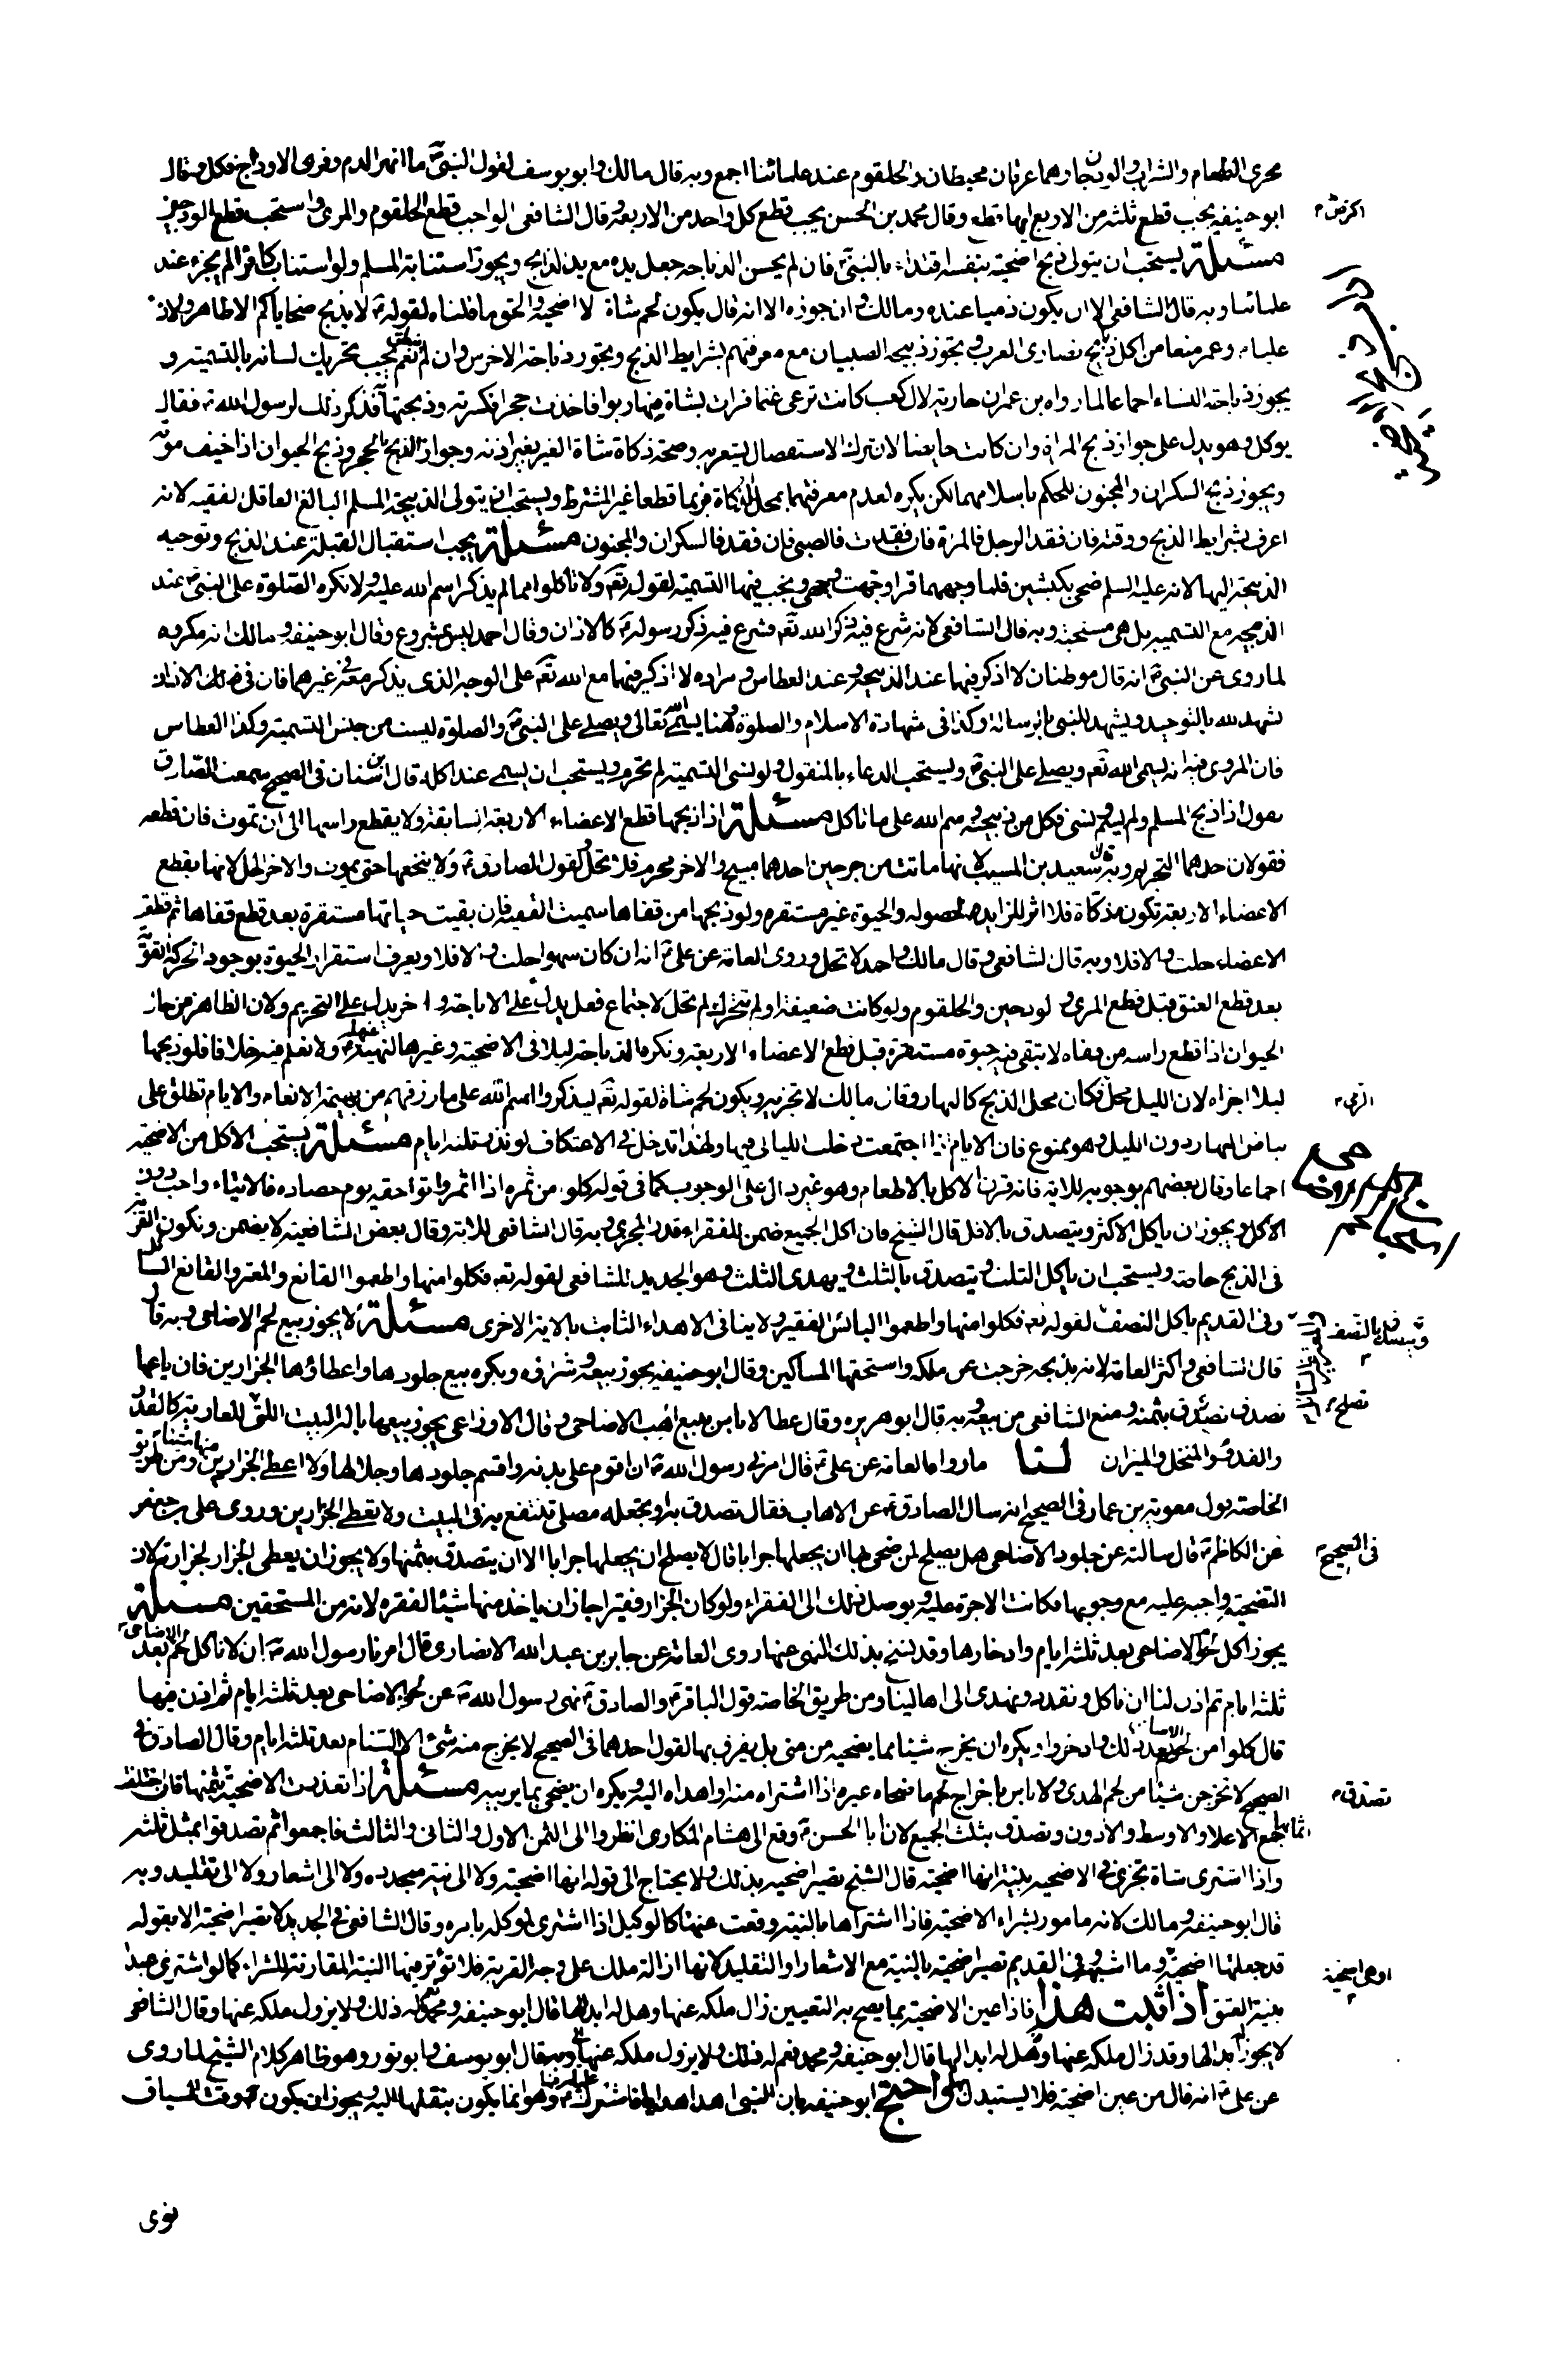 مجرى الطعام والشراب والودجان وهما عرقان محيطان بالحلقوم عند علمائنا اجمع وبه قال مالك وابو يوسف لقول النبى ما انهر الدم وفرى الاوداج فكل وقال
ابو حنيفه يجب قطع ثلثه من الاربع ايها قطع وقال محمد بن الحسن يجب قطع كل واحد من الاربعه وقال الشافعى الواجب قطع الحلقوم والمرى واستحب قطع الودجين
مسئلة يستحب ان يتولى ذبح اضحيته بنفسه اقتداء بالنبى فان لم يحسن الذباحه جعل يده مع يد الذابح ويجوز استنابة المسلم ولو استناب كافرا لم يجزء عند
علمائنا وبه قال الشافعى الا ان يكون ذميا عنده ومالك وان جوزه الا انه قال يكون لحم شاة لا اضحية والحق ما قلناه لقوله لا يذبح ضحاياكم الا طاهر ولان
عليا وعمر منعا من اكل ذبايح نصارى العرب ويجوز ذبيحه الصبيان مع معرفتهم بشرايط الذبح ويجوز ذباحة الاخرس وان لم ينطق نعم يجب تحريك لسانه بالتسمية و
يجوز ذباحة النساء اجماعا لما رواه بن عمر ان جارية لال كعب كانت ترعى غنما فرات بشاة منها ربوا فاخذت حجرا فكسرته وذبحتها فذكر ذلك لرسول الله فقال
يوكل وهو يدل على جواز ذبح المراة وان كانت حايضا لان ترك الاستفصال يشعر به وصحة ذكاة شاة الغير بغير اذنه وجواز الذبح بالحجر وذبح الحيوان اذا خيف موته
ويجوز ذبح السكران والمجنون للحكم باسلامهما لكن يكره لعدم معرفتهما بمحل الذكاة فربما قطعا غير المشترط ويستحب ان يتولى الذبيحة المسلم البالغ العاقل الفقيه لانه
اعرف بشرايط الذبح ووقته فان فقد الرجل فالمراة فان فقدت فالصبى فان فقد فالسكران والمجنون مسئلة يجب استقبال القبلة عند الذبح وتوجيه
الذبيحة اليها لانه عليه السلم ضحى بكبشين فلما وجههما قرا وجهت وجهى ويجب فيها التسمية لقوله تع ولا تاكلوا مما لم يذكر اسم الله عليه ولا تكره الصلوة على النبى عند
الذبيحه مع التسميه بل هى مستحبة وبه قال الشافعى لانه شرع فيه ذكر الله تع فشرع فيه ذكر رسوله كالاذان وقال احمد ليس بمشروع وقال ابو حنيفه ومالك انه مكروه
لما روى عن النبى انه قال موطنان لا اذكر فيهما عند الذبيحة وعند العطاس ومراده لا اذكر فيهما مع الله تع على الوجه الذى يذكر معه فى غيرهما فان فى ذلك الاذان
تشهد لله بالتوحيد ويشهد للنبى بالرساله وكذا فى شهادة الاسلام والصلوة وهنا يسمى الله تعالى ويصلى على النبى والصلوة ليست من جنس التسمية وكذا العطاس
فان المروى فيه انه يسمى الله تع ويصلى على النبى ويستحب الدعاء بالمنقول ولو نسى التسمية لم يحرم ويستحب ان يسمى عند اكله قال ابن سنان فى الصحيح سمعت الصادق
يقول اذا ذبح المسلم ولم يسم ونسى فكل من ذبيحته وسم الله على ما تاكل مسئلة اذا ذبحها قطع الاعضاء الاربعة السابقة ولا يقطع راسها الى ان تموت فان قطعه
فقولان احدهما التحريم وبه قال سعيد بن المسيب لانها ماتت من جرحين احدهما مبيح والاخر محرم فلا تحل ولقول الصادق ولا ينخعها حتى يموت والاخر الحل لانها بقطع
الاعضاء الاربعة تكون مذكاة فلا اثر للزايد لحصوله والحيوة غير مستقره ولو ذبحها من قفاها سميت القفيه فان بقيت حياتها مستقرة بعد قطع قفاها ثم قطع
الاعضاء حلت والا فلا وبه قال الشافعى وقال مالك واحمد لا تحل وروى العامة عن على انه ان كان سهوا حلت والا فلا ويعرف استقرار الحيوة بوجود الحركة القوية
بعد قطع العنق قبل قطع المرى والودجين والحلقوم ولو كانت ضعيفة او لم تتحرك لم تحل لاجتماع فعل يدل على الاباحة واخر يدل على التحريم ولان الظاهر من حال
الحيوان اذا قطع راسه من قفاه لا تبقى فيه حيوة مستقرة قبل قطع الاعضاء الاربعة وتكره الذباحة ليلا فى الاضحية وغيرها لنهيه ولا نعلم فيه خلافا فلو ذبحها
ليلا اجزاه لان الليل محل فكان محل الذبح كالنهار وقال مالك لا تجزيه ويكون لحم شاة لقوله تع ليذكروا اسم الله على ما رزقهم من بهيمة الانعام والايام تطلق على
بياض النهار دون الليل وهو ممنوع فان الايام اذا اجتمعت دخلت الليالى فيها ولهذا تدخل فى الاعتكاف لو نذر ثلثة ايام مسئلة يستحب الاكل من الاضحية
اجماعا وقال بعضهم بوجوبه للاية فانه قرن الاكل بالاطعام وهو غير دال على الوجوب كما فى قوله كلوا من ثمره اذا اثمر واتوا حقه يوم حصاده فالايتاء واجب دون
الاكل ويجوز ان ياكل الاكثر ويتصدق بالاقل قال الشيخ فان اكل الجميع ضمن للفقراء قدر المجزى وبه قال الشافعى للاية وقال بعض الشافعية لا يضمن وتكون القربة
فى الذبح خاصة ويستحب ان ياكل الثلث ويتصدق بالثلث ويهدى الثلث وهو الجديد للشافعى لقوله تع فكلوا منها واطعموا القانع والمعتر والقانع السائل
وفى القديم ياكل النصف لقوله تع فكلوا منها واطعموا البائس الفقير ولا ينافى الاهداء الثابت بالاية الاخرى مسئلة لا يجوز بيع لحم الاضاحى وبه قال
قال الشافعى واكثر العامة لانه بذبحه خرجت عن ملكه واستحقها المساكين وقال ابو حنيفه يجوز بيعه وشراؤه ويكره بيع جلودها واعطاؤها الجزارين فان باعها
تصدق بثمنه ومنع الشافعى من بيعه وبه قال ابو هريره وقال عطا لا باس ببيع اهب الاضاحى وقال الاوزاعى يجوز بيعها بالة البيت التى للعارية كالقدر
والقدوم والمنخل والميزان لنا ما رواه العامة عن على قال امرنى رسول الله ان اقوم على بدنه واقسم جلودها وجلالها ولا اعطى الجزارين منها شيئا ومن طريق
الخاصة قول معوية بن عمار فى الصحيح انه سال الصادق عن الاهاب فقال تصدق به او تجعله مصلى تنتفع به فى البيت ولا تعطى الجزارين وروى على بن جعفر
عن الكاظم قال سالته عن جلود الاضاحى هل يصلح لمن ضحى بها ان يجعلها جرابا قال لا يصلح ان يجعلها جرابا الا ان يتصدق بثمنها ولا يجوز ان يعطى الجزار لجزارته لان
التضحية واجبه عليه مع وجوبها فكانت الاجرة عليه ويوصل ذلك الى الفقراء ولو كان الجزار فقيرا جاز ان ياخذ منها شيئا لفقره لانه من المستحقين مسئلة
يجوز اكل لحوم الاضاحى بعد ثلثة ايام وادخارها وقد نسخ بذلك النهى عنها روى العامة عن جابر بن عبد الله الانصارى قال امرنا رسول الله ان لا ناكل لحم الاضاحى بعد
ثلثة ايام ثم اذن لنا ان ناكل ونقدد ونهدى الى اهالينا ومن طريق الخاصة قول الباقر والصادق نهى رسول الله عن لحوم الاضاحى بعد ثلثة ايام ثم اذن فيها
قال كلوا من لحوم الاضاحى بعد ذلك وادخروا ويكره ان يخرج شيئا مما يضحيه من منى بل يفرق بها لقول احدهما فى الصحيح لا يخرج منه شئ الا السنام بعد ثلثة ايام وقال الصادق فى
الصحيح لا تخرجن شيئا من لحم الهدى ولا باس باخراج لحم ما ضحاه غيره اذا اشتراه منه او اهداه اليه ويكره ان يضحى بما يربيه مسئلة اذا تعذرت الاضحية تصدق بثمنها فان اختلف
اثمانها جمع الاعلا والاوسط والادون وتصدق بثلث الجميع لان ابا الحسن وقع الى هشام المكارى انظروا الى الثمن الاول والثانى والثالث فاجمعوا ثم تصدقوا بمثل ثلثه
واذا اشترى شاة تجزى فى الاضحيه بنية انها اضحية قال الشيخ تصير اضحيه بذلك ولا يحتاج الى قوله انها اضحية ولا الى نية مجدده ولا الى اشعار ولا الى تقليد وبه
قال ابو حنيفه ومالك لانه مامور بشراء الاضحية فاذا اشتراها بالنية وقعت عنها كالوكيل اذا اشترى لموكله بامره وقال الشافعى فى الجديد لا تصير اضحية الا بقوله
قد جعلتها اضحية وما اشبهه وفى القديم تصير اضحية بالنية مع الاشعار او التقليد لانها ازالة ملك على وجه القربة فلا تؤثر فيها النية المقارنة للشراء كما لو اشترى عبدا
بنية العتق اذا ثبت هذا فاذا عين الاضحية بما يصح به التعيين زال ملكه عنها وهل له ابدالها قال ابو حنيفه ومحمد نعم له ذلك ولا يزول ملكه عنها وقال الشافعى
لا يجوز ابدالها وقد زال ملكه عنها وهل له ابدالها قال ابو حنيفه ومحمد نعم له ذلك ولا يزول ملكه عنها وبه قال ابو يوسف وابو ثور وهو ظاهر كلام الشيخ لما روى
عن على انه قال من عين اضحية فلا يستبدل بها واحتج ابو حنيفه بان النبى اهدا هدايا فاشرك عليا فيها وهو انما يكون بنقلها اليه ويجوز ان يكون وقت السياق
اكرض
الرمى
ويتصدق بالنصف
تصلح
فى الصحيح
تصدق
او هى اضحية
نوى